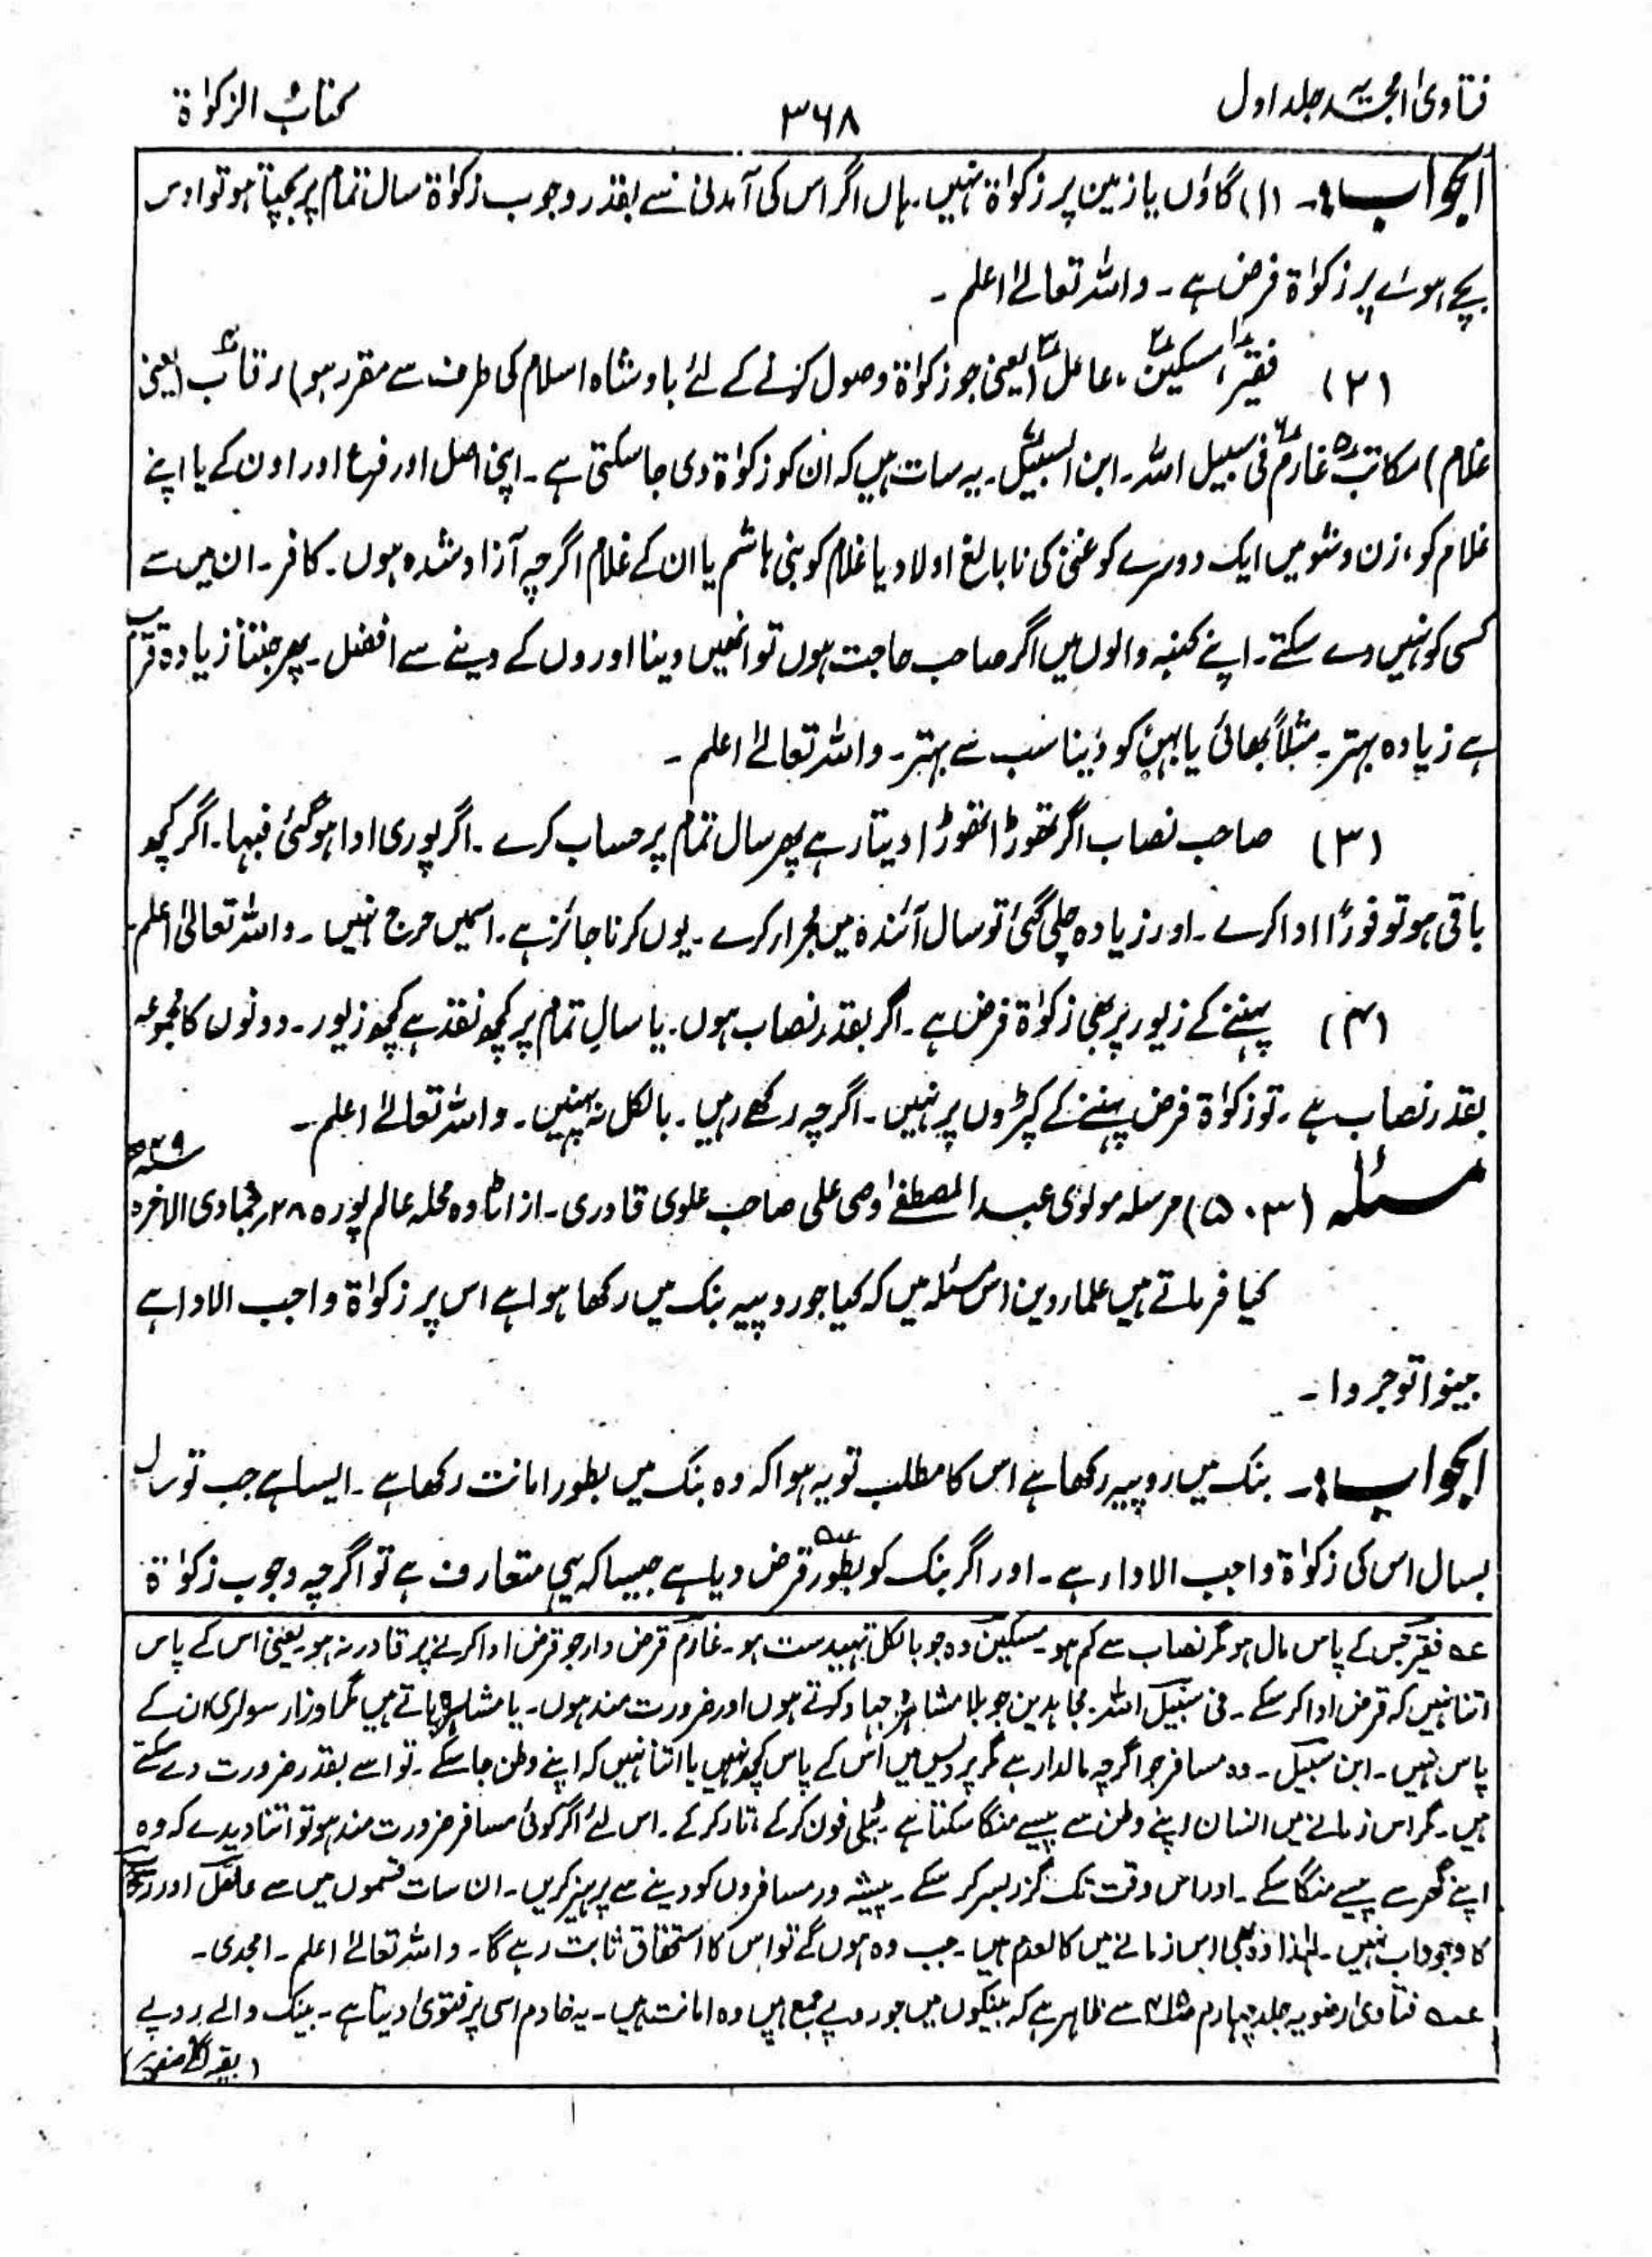 فتاویٰ امجدیہ جلد اول
۳۶۸
کتاب الزکوٰۃ
الجواب:۔ (۱) گاؤں یا زمین پر زکوٰۃ نہیں۔ ہاں اگر اس کی آمدنی سے بقدر وجوب زکوٰۃ سال تمام پر بچتا ہو تو اوس
بچے ہوئے پر زکوٰۃ فرض ہے۔ واللہ تعالیٰ اعلم۔
(۲) فقیر۱، مسکین۲، عامل۳ (یعنی جو زکوٰۃ وصول کرنے کے لئے بادشاہ اسلام کی طرف سے مقرر ہو) رقاب۴ (یعنی
غلام) مکاتب۵ غارم۶ فی سبیل اللہ۔ ابن السبیل۔ یہ سات ہیں کہ ان کو زکوٰۃ دی جا سکتی ہے۔ اپنی اصل اور فرع اور اون کے یا اپنے
غلام کو، زن و شو میں ایک دوسرے کو غنی کی نابالغ اولاد یا غلام کو بنی ہاشم یا ان کے غلام اگرچہ آزاد شدہ ہوں۔ کافر۔ ان میں سے
کسی کو نہیں دے سکتے۔ اپنے کنبہ والوں میں اگر صاحب حاجت ہوں تو انھیں دینا اوروں کے دینے سے افضل۔ پھر جتنا زیادہ قریب
ہے زیادہ بہتر۔ مثلاً بھائی یا بہن کو دینا سب سے بہتر۔ واللہ تعالیٰ اعلم۔
(۳) صاحب نصاب اگر تھوڑا تھوڑا دیتا رہے پھر سال تمام پر حساب کرے۔ اگر پوری ادا ہوگئی فبہا۔ اگر کچھ
باقی ہو تو فوراً ادا کرے۔ اور زیادہ چلی گئی تو سال آئندہ میں مجرا کرے۔ یوں کرنا جائز ہے۔ اسمیں حرج نہیں۔ واللہ تعالیٰ اعلم۔
(۴) پہننے کے زیور پر بھی زکوٰۃ فرض ہے۔ اگر بقدر نصاب ہوں۔ یا سال تمام پر کچھ نقد ہے کچھ زیور۔ دونوں کا مجموعہ
بقدر نصاب ہے۔ تو زکوٰۃ فرض پہننے کے کپڑوں پر نہیں۔ اگرچہ رکھے رہیں۔ بالکل نہ پہنیں۔ واللہ تعالیٰ اعلم۔
مسئلہ (۵۰۳) مرسلہ مولوی عبد المصطفےٰ وصی علی صاحب علوی قادری۔ از اٹاوہ محلہ عالم پورہ ۲۸؍ جمادی الاخرہ
کیا فرماتے ہیں علماء دین اس مسئلہ میں کہ کیا جو روپیہ بنک میں رکھا ہوا ہے اس پر زکوٰۃ واجب الادا ہے
بینوا توجروا۔
الجواب:۔ بنک میں روپیہ رکھا ہے اس کا مطلب تو یہ ہوا کہ وہ بنک میں بطور امانت رکھا ہے۔ ایسا ہے جب تو سال
بسال اس کی زکوٰۃ واجب الاداء ہے۔ اور اگر بنک کو بطور عہ قرض دیا ہے جیسا کہ یہی متعارف ہے تو اگرچہ وجوب زکوٰۃ
عہ فقیر جس کے پاس مال ہو مگر نصاب سے کم ہو۔ مسکین وہ جو بالکل تہیدست ہو۔ غارم قرض دار جو قرض ادا کرنے پر قادر نہ ہو۔ یعنی اس کے پاس
اتنا نہیں کہ قرض ادا کر سکے۔ فی سبیل اللہ۔ مجاہدین جو بلا مشاہرہ جہاد کرتے ہوں اور ضرورت مند ہوں۔ یا مشاہرہ پاتے ہیں مگر اوزار سواری ان کے
پاس نہیں۔ ابن سبیل۔ وہ مسافر جو اگرچہ مالدار ہے مگر پردیس میں اس کے پاس کچھ نہیں یا اتنا نہیں کہ اپنے وطن جا سکے۔ تو اسے بقدر ضرورت دے سکتے
ہیں۔ مگر اس زمانے میں انسان اپنے وطن سے پیسے منگا سکتا ہے۔ ٹیلی فون کر کے، تار کر کے۔ اس لئے اگر کوئی مسافر ضرورت مند ہو تو اتنا دیدے کہ وہ
اپنے گھر سے پیسے منگا سکے۔ اور اس وقت تک گزر بسر کر سکے۔ پیشہ ور مسافروں کو دینے سے پرہیز کریں۔ ان سات قسموں میں سے عامل اور
کا وجود اب نہیں۔ لہٰذا وہ بھی اس زمانے میں کالعدم ہیں۔ جب وہ ہوں گے تو اس کا استحقاق ثابت رہے گا۔ واللہ تعالیٰ اعلم۔ امجدی۔
عہ فتاویٰ رضویہ جلد چہارم سے ظاہر ہے کہ بینکوں میں جو روپے جمع ہیں وہ امانت ہیں۔ یہ خادم اسی پر فتویٰ دیتا ہے۔ بینک والے روپے
(بقیہ اگلے صفحہ پر)